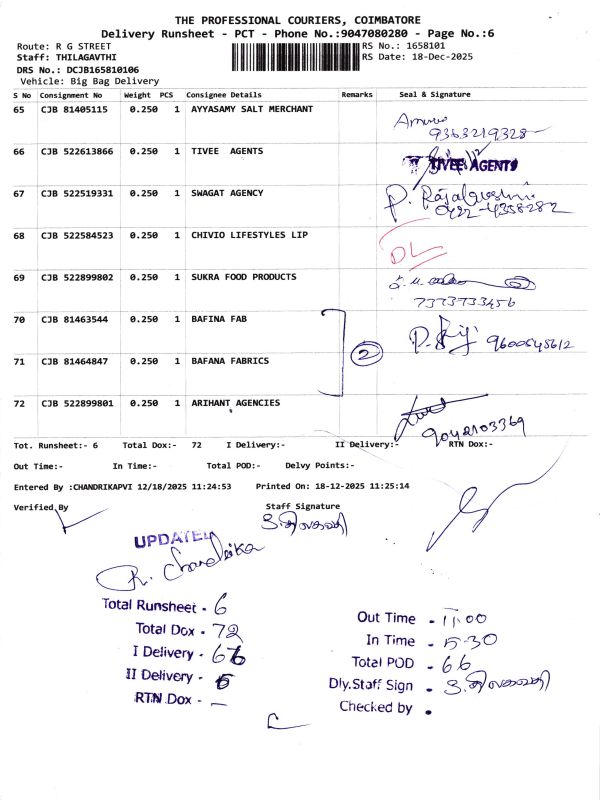 THE PROFESSIONAL COURIERS, COIMBATORE
Delivery Runsheet - PCT - Phone No.:9047080280 - Page No.:6
Route: R G STREET RS No.: 1658101
Staff: THILAGAVTHI RS Date: 18-Dec-2025
DRS No.: DCJB165810106
Vehicle: Big Bag Delivery
S No Consignment No Weight PCS Consignee Details Remarks Seal & Signature
65 CJB 81405115 0.250 1 AYYASAMY SALT MERCHANT
9363219328
66 CJB 522613866 0.250 1 TIVEE AGENTS TIVEE AGENTS
67 CJB 522519331 0.250 1 SWAGAT AGENCY
0422-4358282
68 CJB 522584523 0.250 1 CHIVIO LIFESTYLES LIP DL
69 CJB 522899802 0.250 1 SUKRA FOOD PRODUCTS
7373733456
70 CJB 81463544 0.250 1 BAFINA FAB
2 9600545612
71 CJB 81464847 0.250 1 BAFANA FABRICS
72 CJB 522899801 0.250 1 ARIHANT AGENCIES
9042103369
Tot. Runsheet:- 6 Total Dox:- 72 I Delivery:- II Delivery:- RTN Dox:-
Out Time:- In Time:- Total POD:- Delvy Points:-
Entered By :CHANDRIKAPVI 12/18/2025 11:24:53 Printed On: 18-12-2025 11:25:14
Verified By Staff Signature
UPDATED
R. Chandrika
Total Runsheet - 6
Total Dox - 72
I Delivery - 66
II Delivery - 6
RTN Dox - —
Out Time - 11.00
In Time - 5-30
Total POD - 66
Dly.Staff Sign -
Checked by -